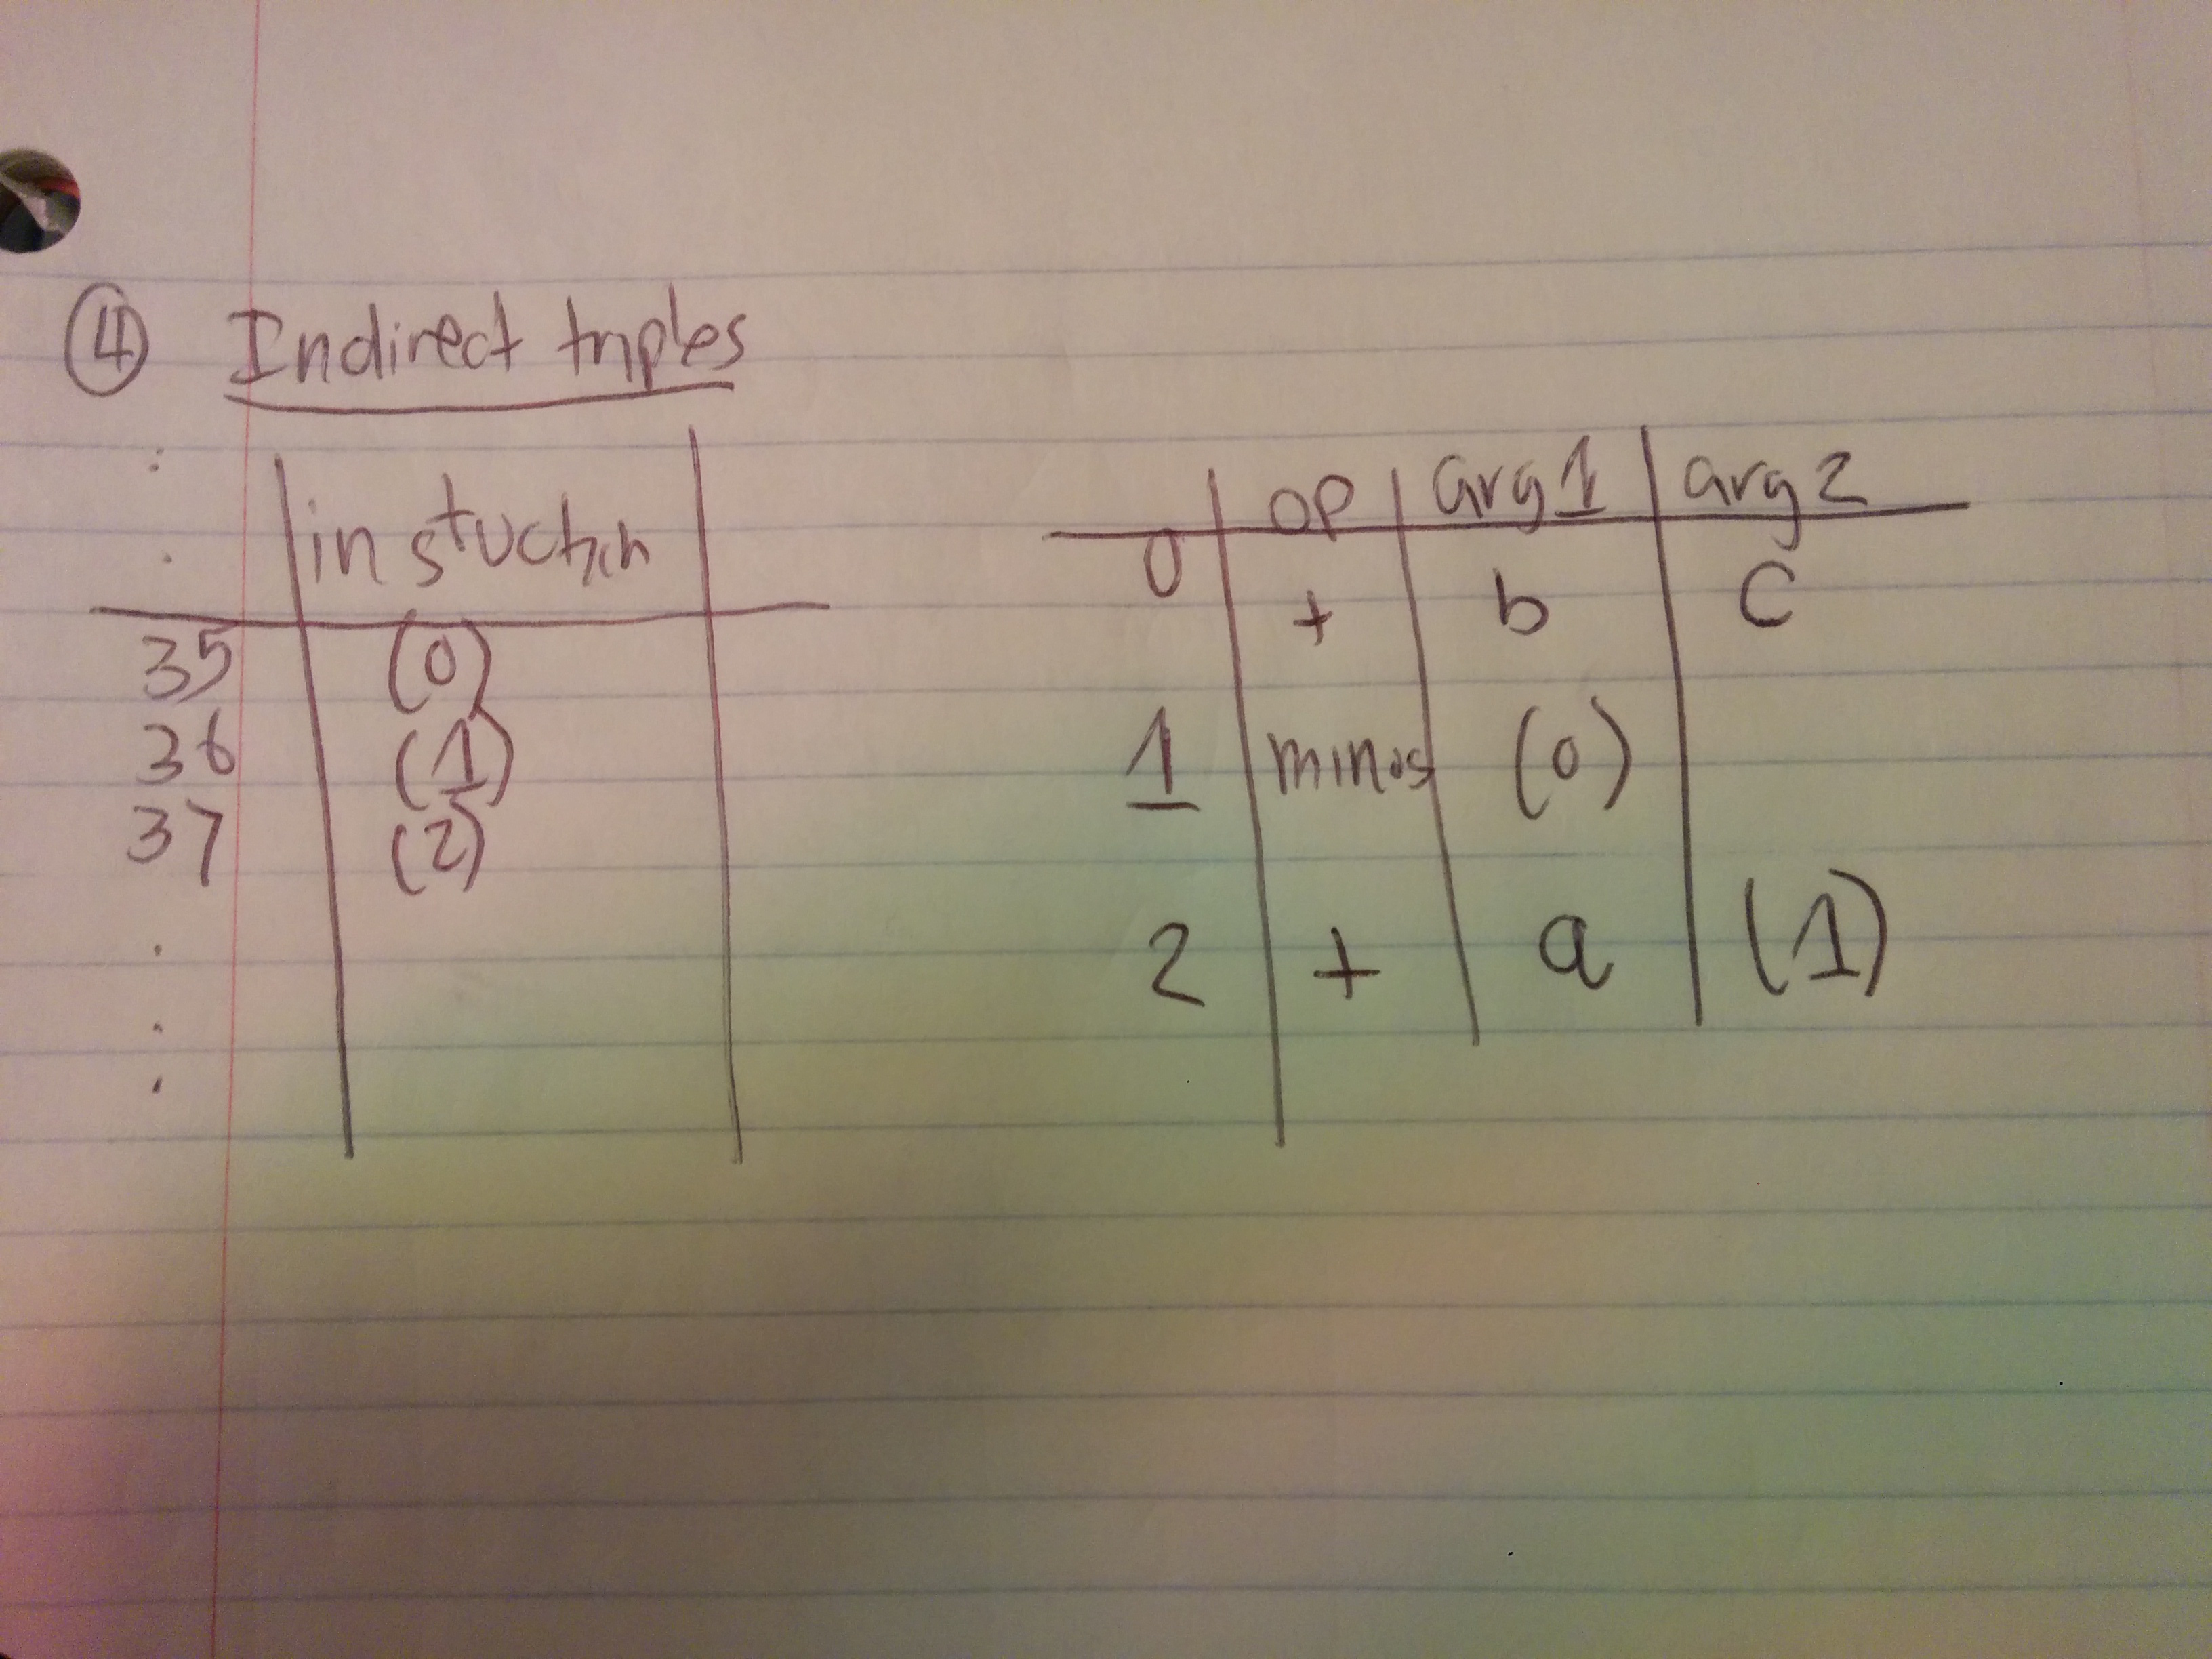 ④ Indirect triples
instuction
35 (0)
36 (1)
37 (2)
op arg1 arg2
0 + b c
1 minus (0)
2 + a (1)